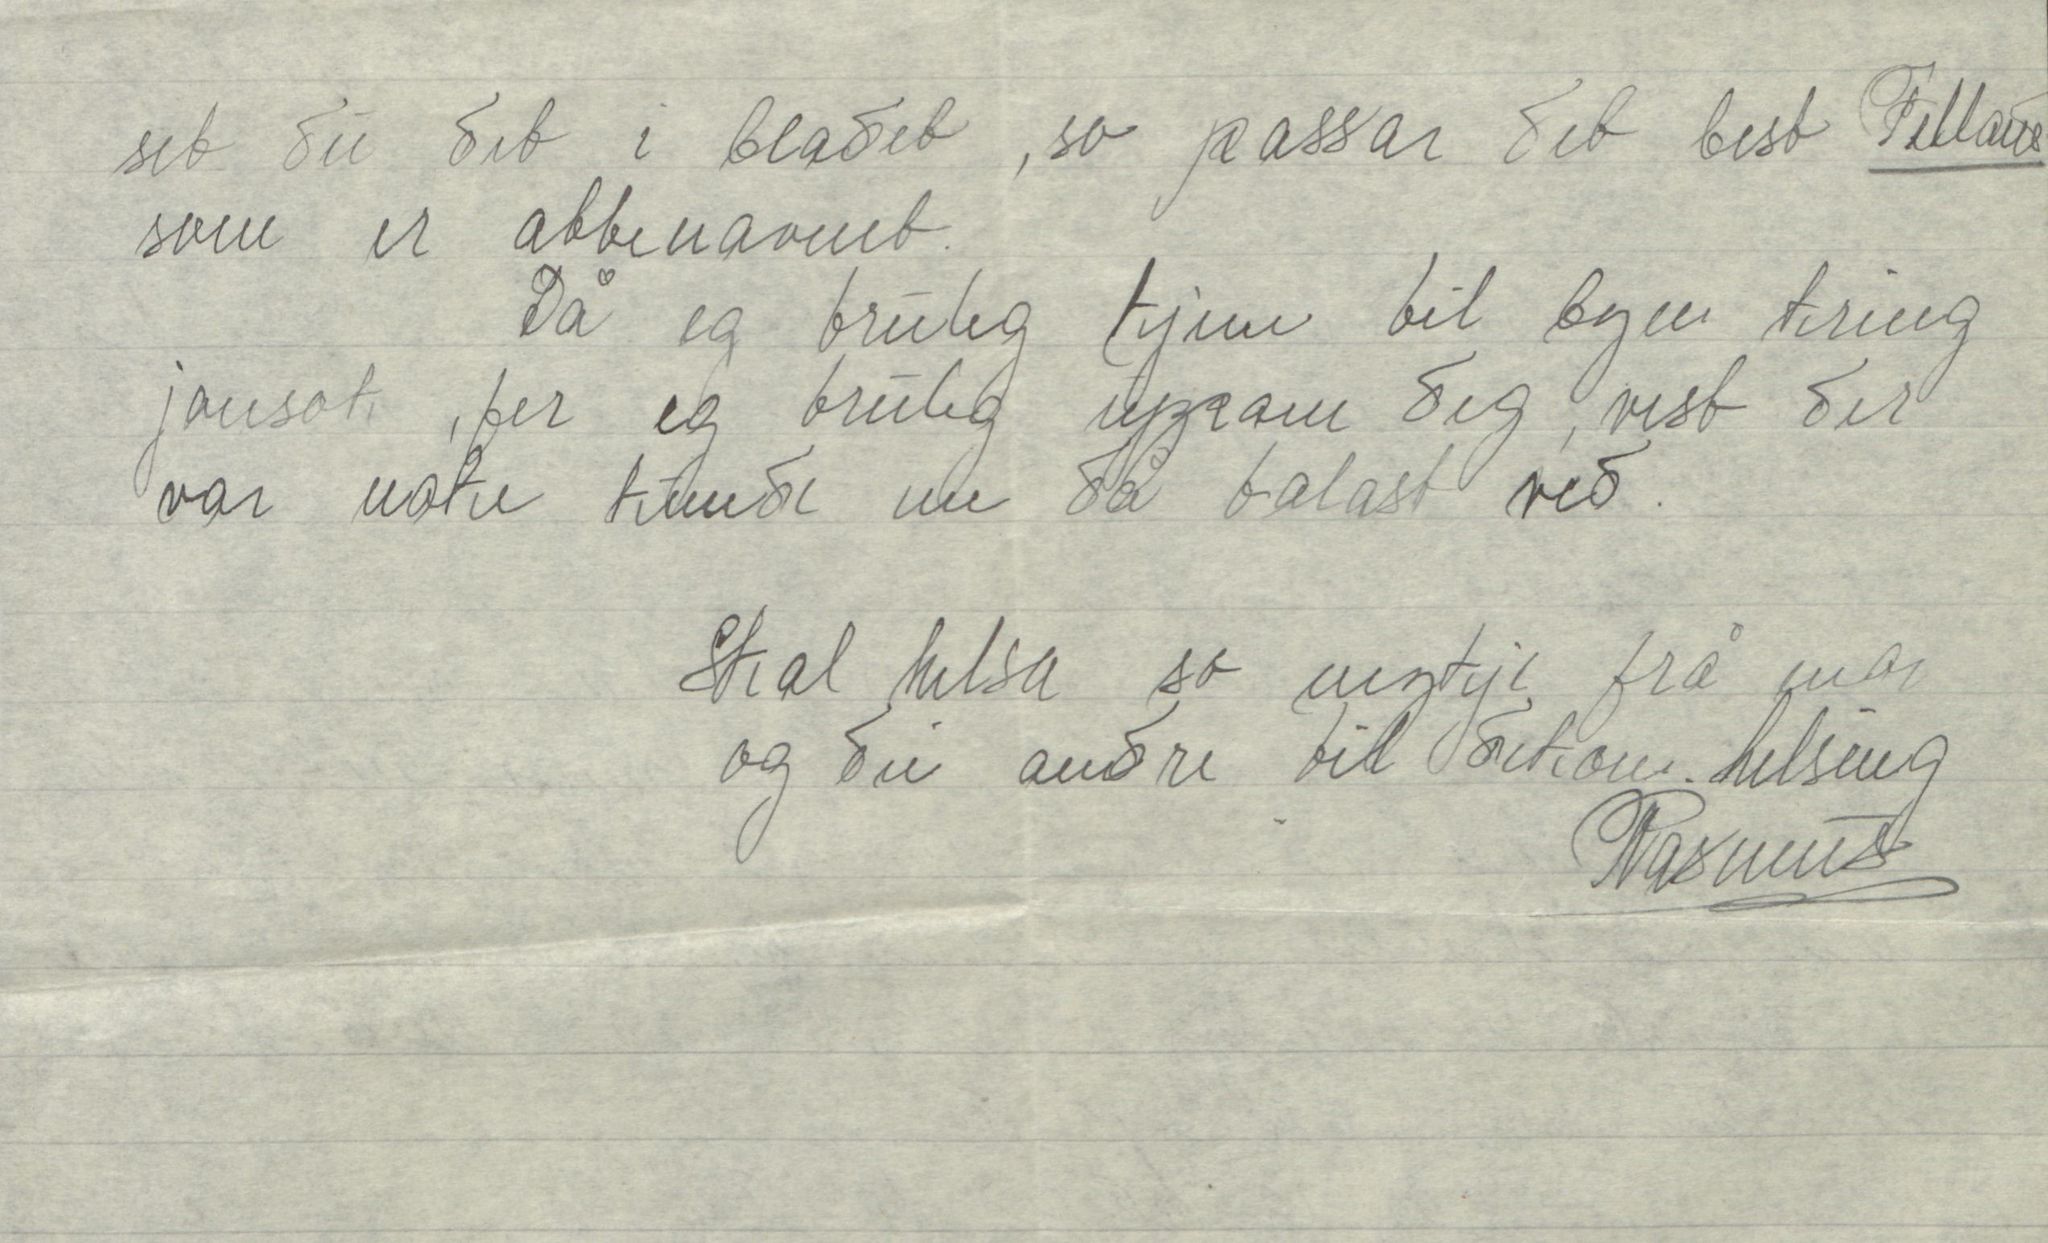 set du det i bladet, so passar det best
som er ættenavnet.
Då eg truleg kjem til byen kring
jonsok, fer eg truleg uppom deg, vist der
var noke kunde me då talast ved.
Skal helsa so mykje frå mor
og dei andre til dekom. helsing
Rasmus